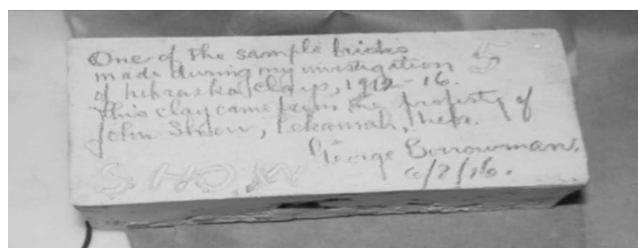 One of the sample bricks 5
made during my investigation
of Nebraska clays, 1912-16.
This clay came from the property of
John Show, Tekamah, Nebr.
George Borrowman.
6/2/16.
S. HOW